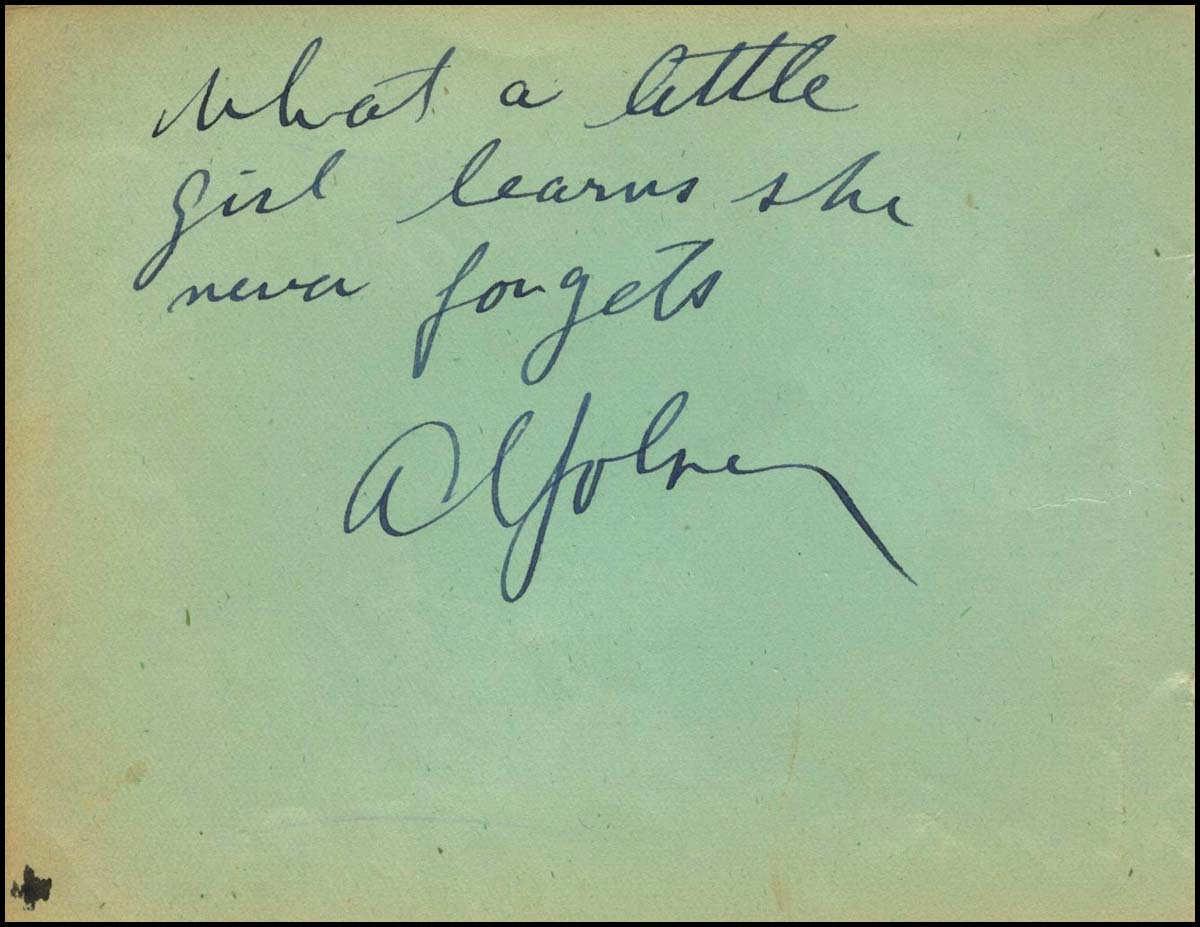 What a little
girl learns she
never forgets
Al Jolson